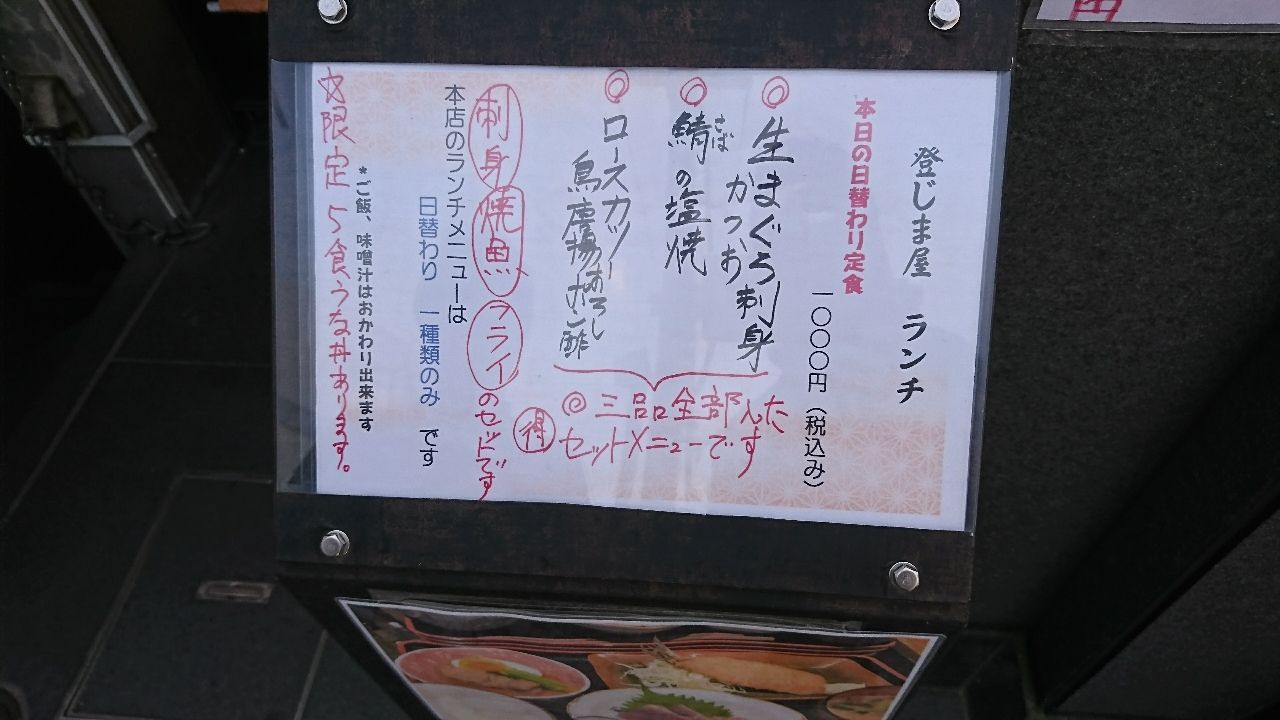 登じま屋 ランチ
本日の日替わり定食
一〇〇〇円（税込み）
◎生まぐろ刺身
かつお
◎鯖の塩焼
さば
◎ロースカツ
鳥唐揚おろしポン酢
◎三品全部入た
セットメニューです
得
刺身 焼魚 フライのセットです
本店のランチメニューは
日替わり 一種類のみ です
*ご飯、味噌汁はおかわり出来ます
☆限定5食うな丼あります。
円